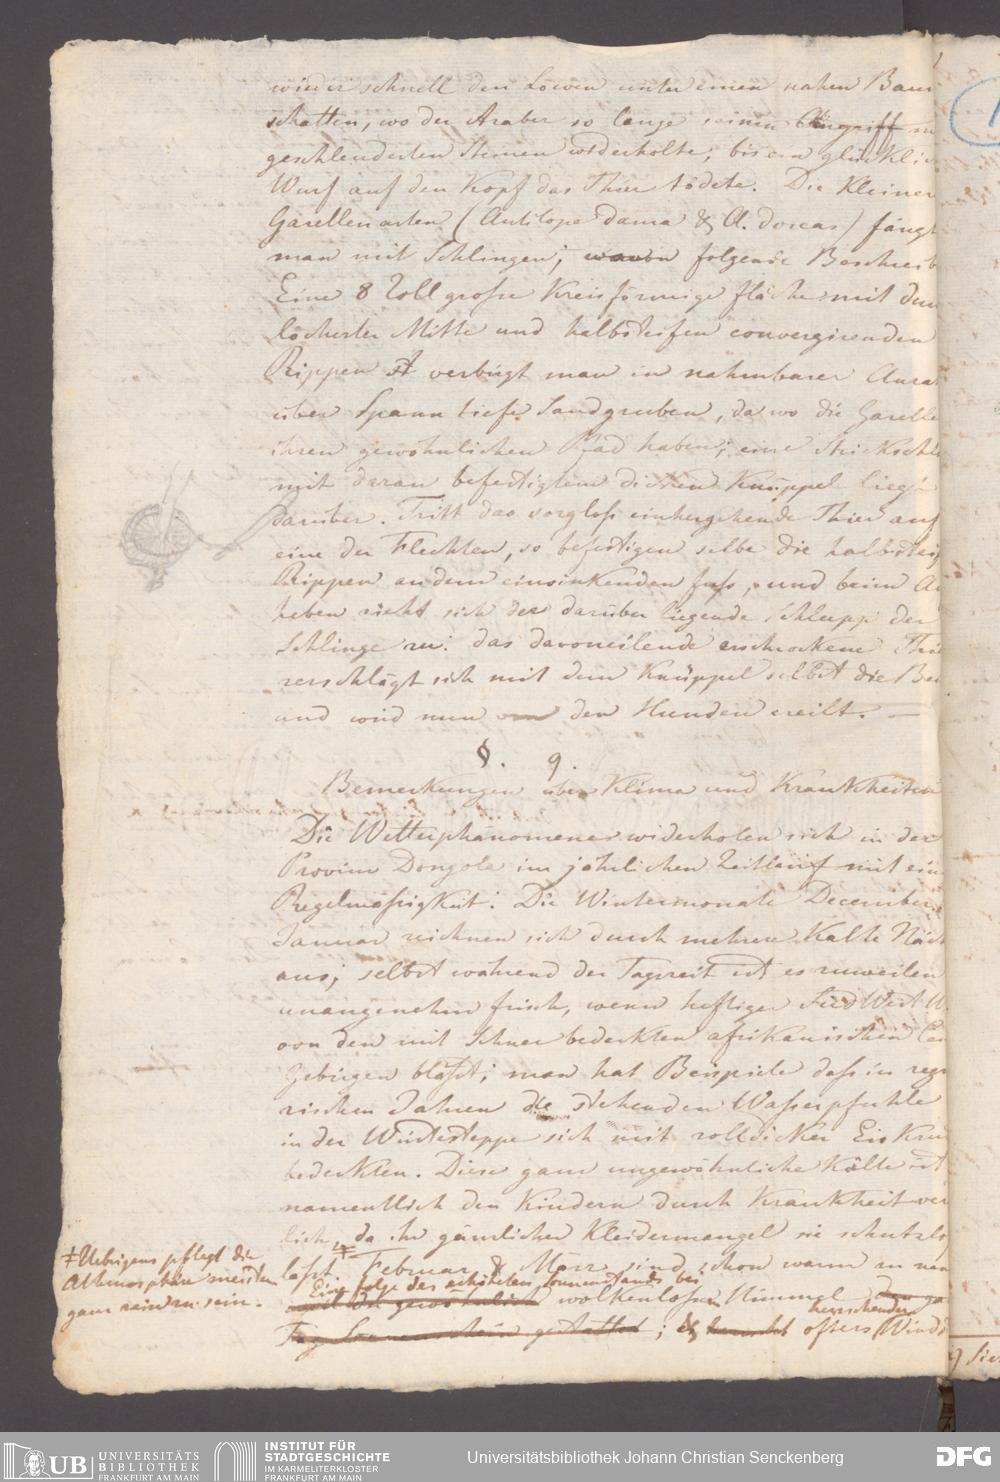 wieder schnell den Löwen unter einen nahen Baum
schatten, wo der Araber so lange seinen Angriff m
geschleuderten Steinen widerholte, bis ein glücklic
Wurf auf den Kopf das Thier tödete. Die Kleiner
Gazellenarten (Antilope Dama & A. dorcas) fängt
man mit Schlingen; wovon folgende Beschreib
Eine 8 Zoll grosse Kreisförmige fläche mit dur
löcherter Mitte und halbsteifen convergirenden
Rippen verbirgt man in nahmbarer Anza
über Spann tiefe Sandgruben, da wo die Gazelle
ihren gewöhnlichen Pfad haben; eine Strickschl
mit daran befestigtem dicken Knüppel liegt
darüber. Tritt das sorglos einhergehende Thier auf
eine der Flechten, so befestigen selbe die halbsteif
Rippen an dem einsinkenden fuss, und beim A
heben zieht sich der darüber liegende Schlupp der
Schlinge zu: das davoneilende erschrockene Thie
zerschlägt sich mit dem Knüppel selbst die Bei
und wird nun von den Hunden ereilt. —
§. 9.
Bemerkungen über Klima und Krankheiten
Die Wetterphänomene widerholen sich in der
Provinz Dongola im jährlichen Zeitlauf mit ein
Regelmässigkeit: Die Wintermonate December,
Januar zeichnen sich durch mehrere Kalte Näch
aus; selbst während der Tagszeit ist es zuweilen
unangenehm frisch, wenn heftiger Süd West W
von den mit Schnee bedeckten afrikanischen Cen
Gebirgen bläst; man hat Beispiele dass in
rischen Jahren die stehenden Wasserpfuhle
in der Wüstesteppe sich mit zolldicker Eis Kru
bedeckten. Diese ganz ungewöhnliche Kälte ist
namentlich den Kindern durch Krankheit ver
lich, da ihr gänzlicher Kleidermangel sie schutzlo
lasst. ‡ Februar & März sind schon warm zu nen
Eine folge des erhöheten Sonnenstands bei
mit der gewöhnlich wolkenlosen Himmel den ga
Tag Sonnenschein gestattet; & herrscht öfters herrschender Wind
‡ Uebrigens pflegt die
Athmosphäre meistens
ganz rein zu sein.
UB UNIVERSITÄTS
BIBLIOTHEK
FRANKFURT AM MAIN
INSTITUT FÜR
STADTGESCHICHTE
IM KARMELITERKLOSTER
FRANKFURT AM MAIN
Universitätsbibliothek Johann Christian Senckenberg
DFG